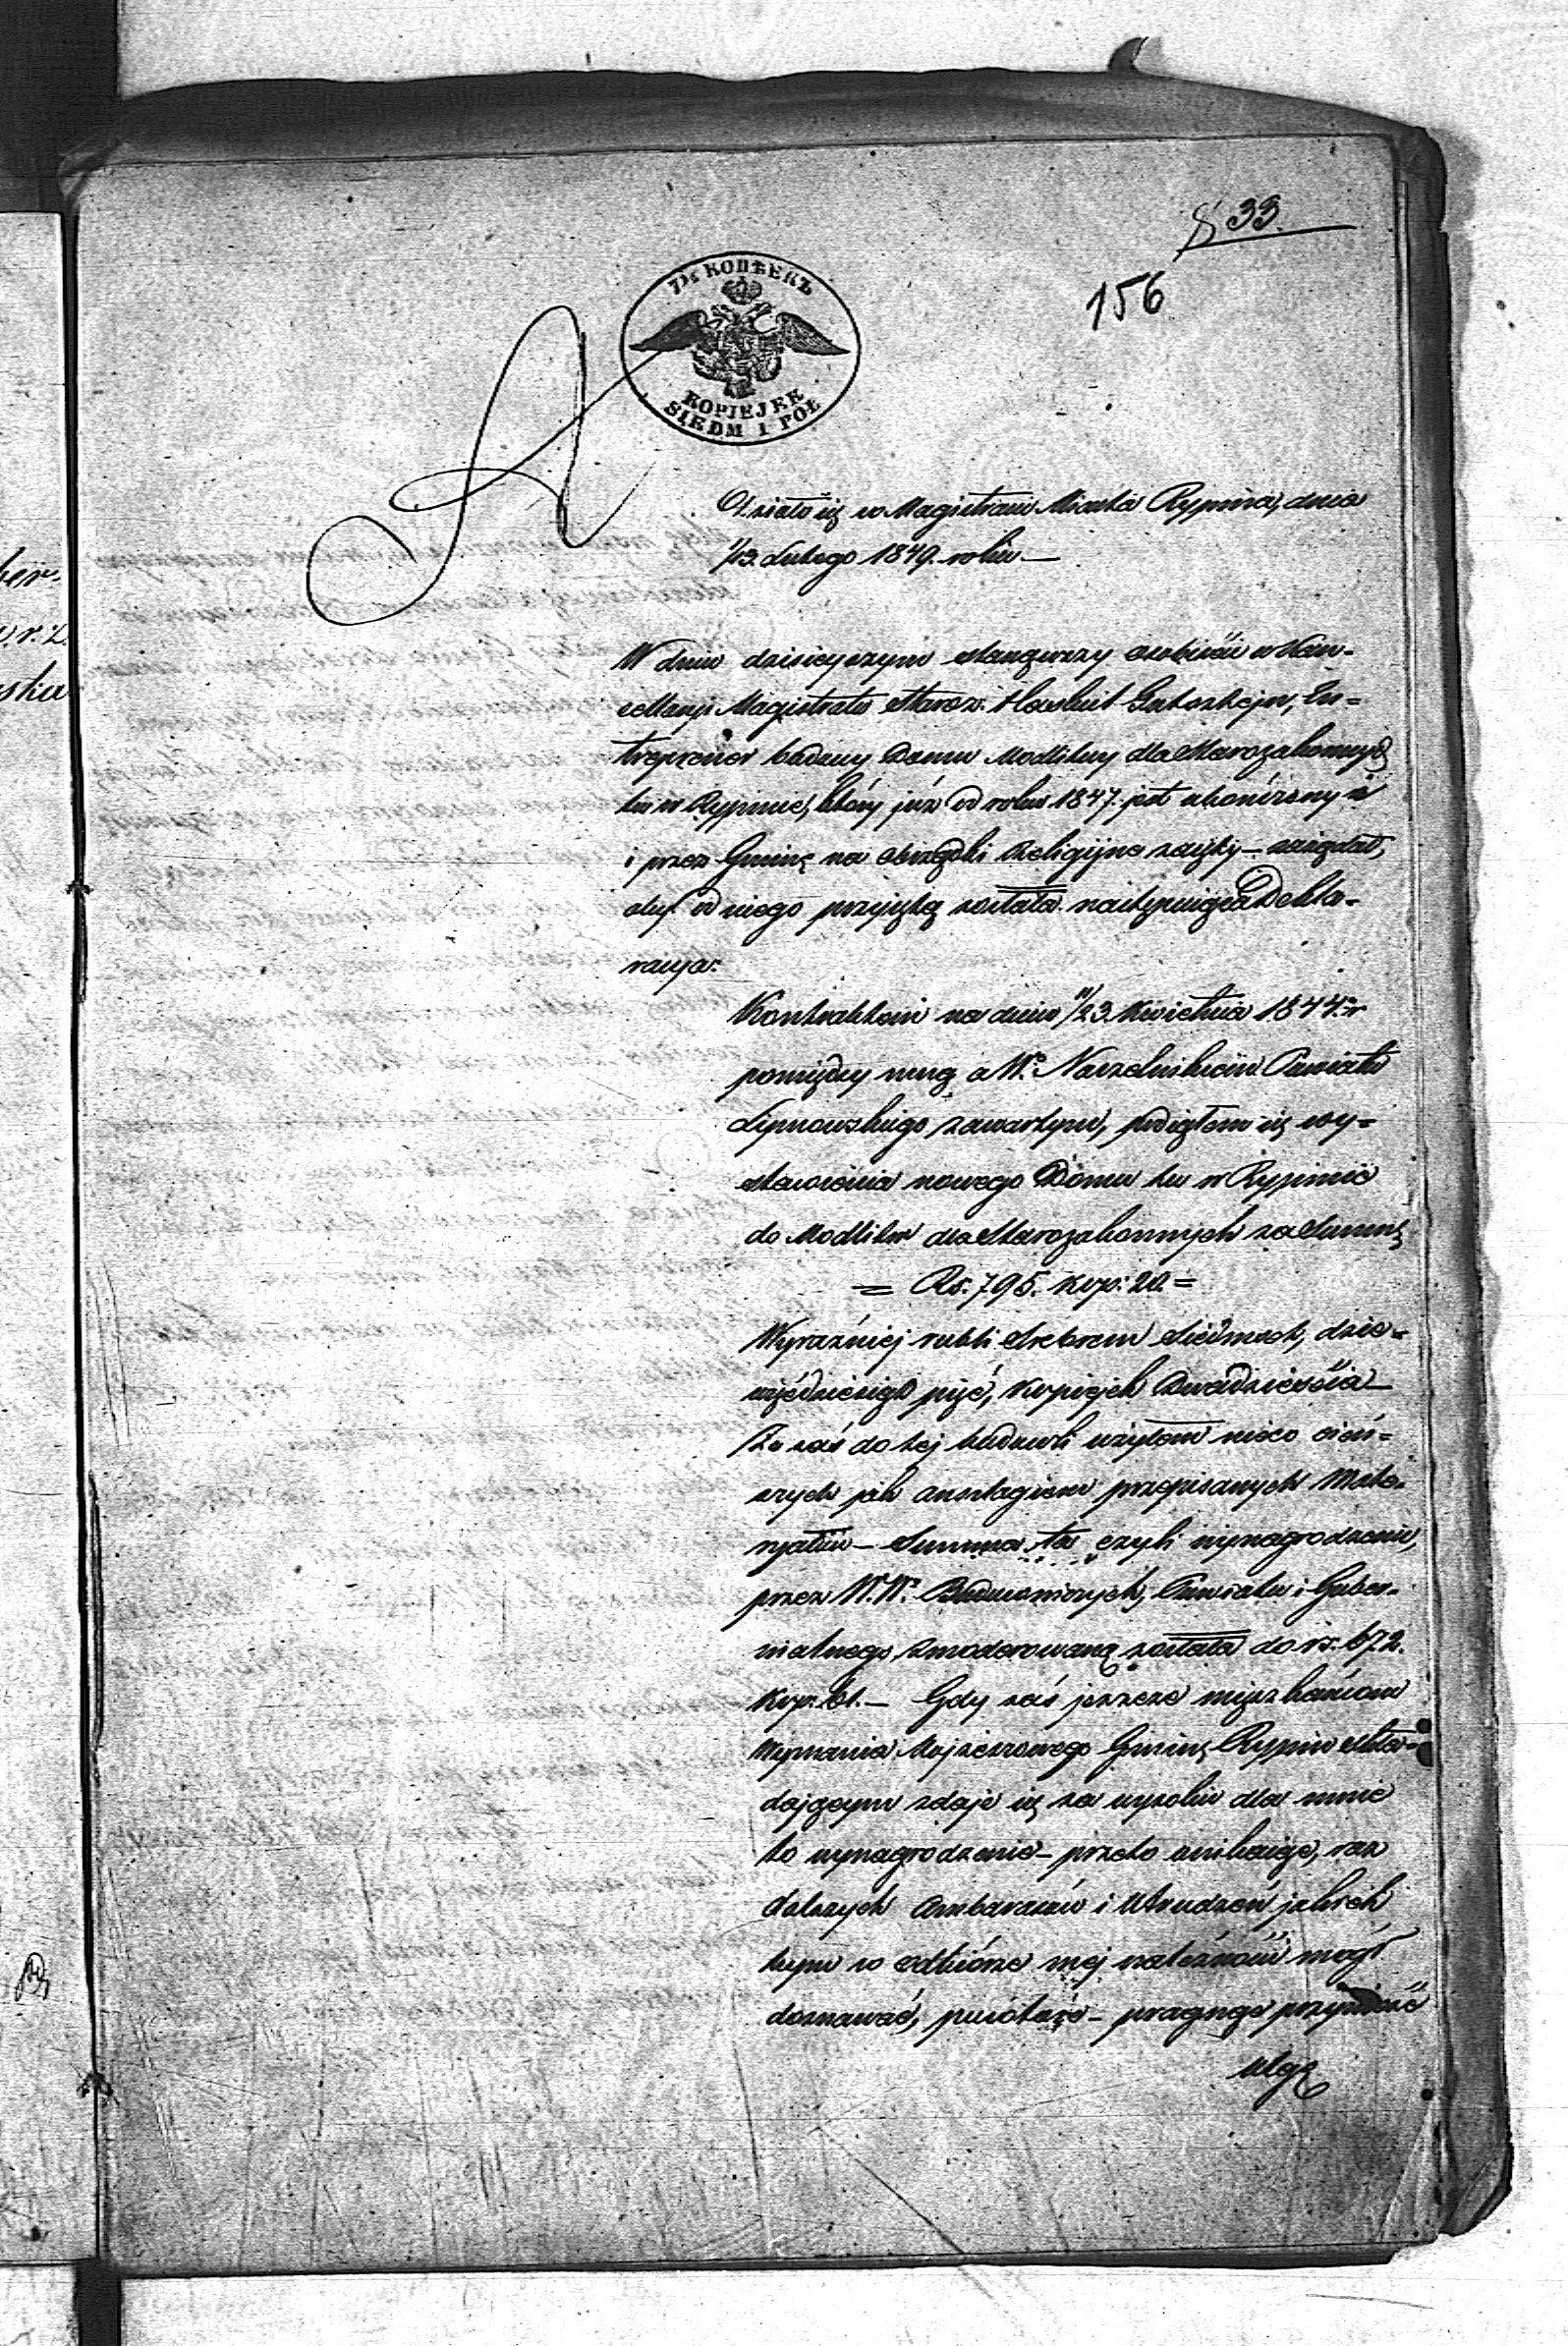 § 33.
156
7½ КОПѢЕКЪ
KOPIEJEK
SIEDM I PÓŁ
Działo się w Magistracie Miasta Rypina, dnia
1/13. Lutego 1849. roku —
W dniu dzisieyszym stanąwszy osobiście w Kan-
cellaryi Magistratu Staroz. Hersklit, En=
treprener budowy Domu Modlitwy dla Starozakonnych
tu w Rypinie, który już od roku 1847. jest ukończony i
i przez Gminę na obrządki Religijne zajęty — zażądał,
aby od niego przyjętą została następująca Dekla-
racya:
Kontraktem na dniu 11/23. Kwietnia 1844. r
pomiędzy mną a W. Naczelnikiem Powiatu
Lipnowskiego zawartym, podiąłem się wy=
stawienia nowego Domu tu w Rypinie
do Modlitw dla Starozakonnych za Summę
= Rs. 795. kop: 20. =
Wyraźniej rubli srebrem siedmset, dzie=
więćdziesiąt pięć, kopiejek Dwadzieścia —
Że zaś do tej budowli użyłem nieco cień=
szych jak anszlagiem przepisanych Mate-
ryałów — Summa ta czyli wynagrodzenie,
przez W.W. Budowniczych, Powiatu i Guber-
nialnego, zmoderowaną została do rs. 672.
kop. 61. — Gdy zaś jeszcze mieszkańcom
Wyznania Mojżeszowego Gminę Rypin skła=
dającym zdaje się za wysokie dla mnie
to wynagrodzenie — przeto unikając, raz
dalszych ambarasów i utrudzeń jakich
bym w odbiorze mej należności mógł
doznawać, powtóre — pragnąc przynieść
ulgę